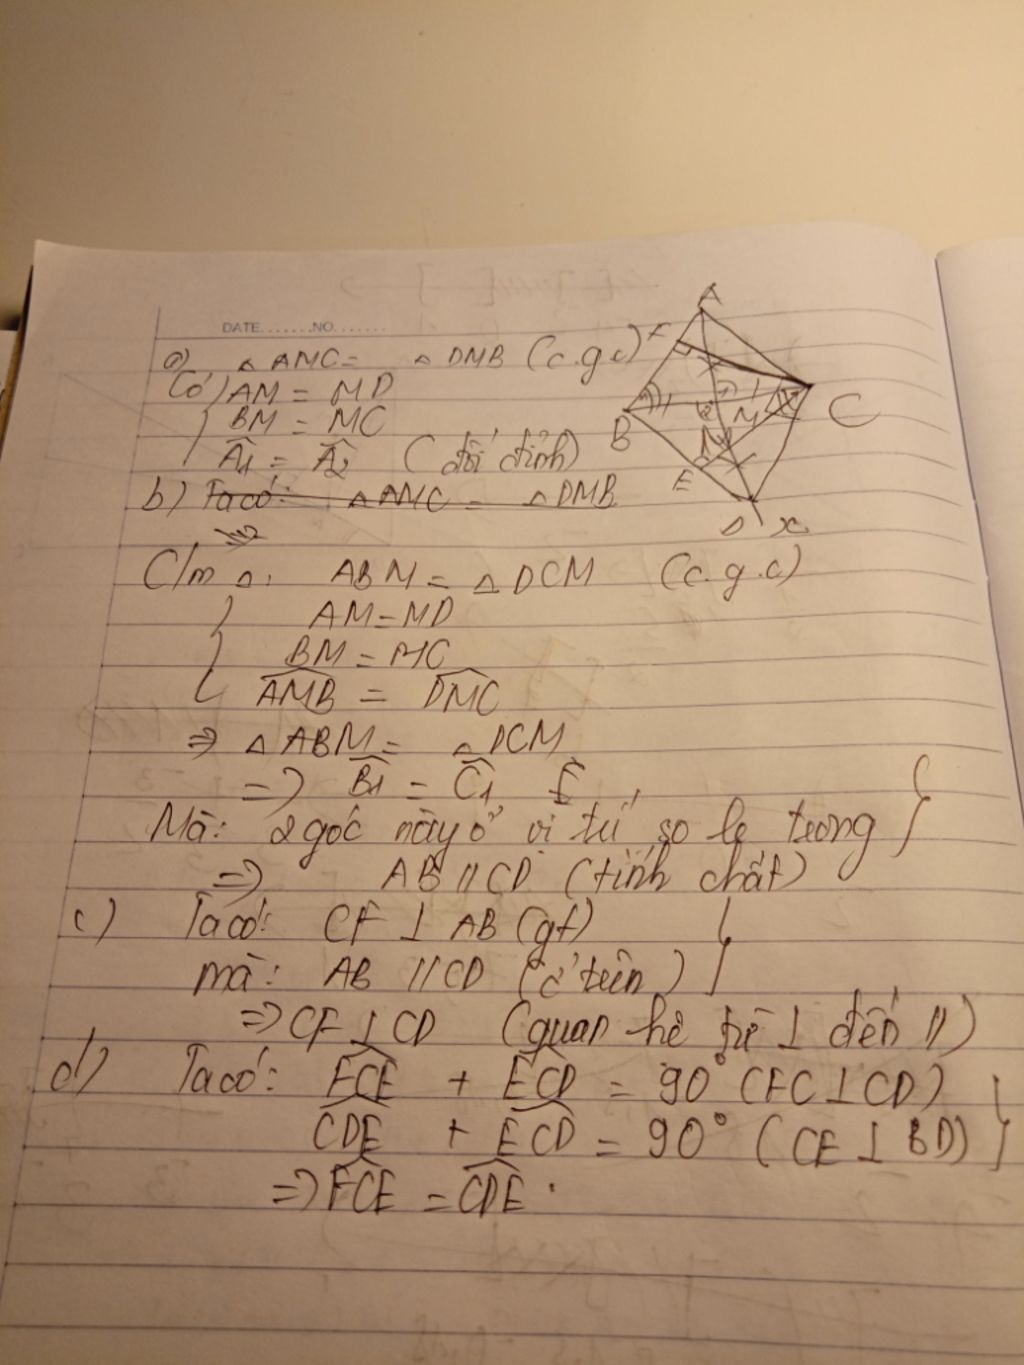 DATE.......NO.......
a) △ AMC = △ DMB (c.g.c)
Có AM = MD
BM = MC
Â1 = Â2 (đối đỉnh)
b) Ta có: △ AMC = △ DMB
=>
C/m △. ABM = △ DCM (c.g.c)
AM = MD
BM = MC
AMB = DMC
=> △ ABM = △ DCM
=> B1 = C1
Mà: 2 góc này ở vị trí so le trong
=> AB // CD (tính chất)
c) Ta có: CF ⊥ AB (gt)
mà: AB // CD (ở trên)
=> CF ⊥ CD (quan hệ từ ⊥ đến //)
d) Ta có: FCE + ECD = 90° (FC ⊥ CD)
CDE + ECD = 90° (CE ⊥ BD)
=> FCE = CDE.
A
F
B
M
C
E
D x